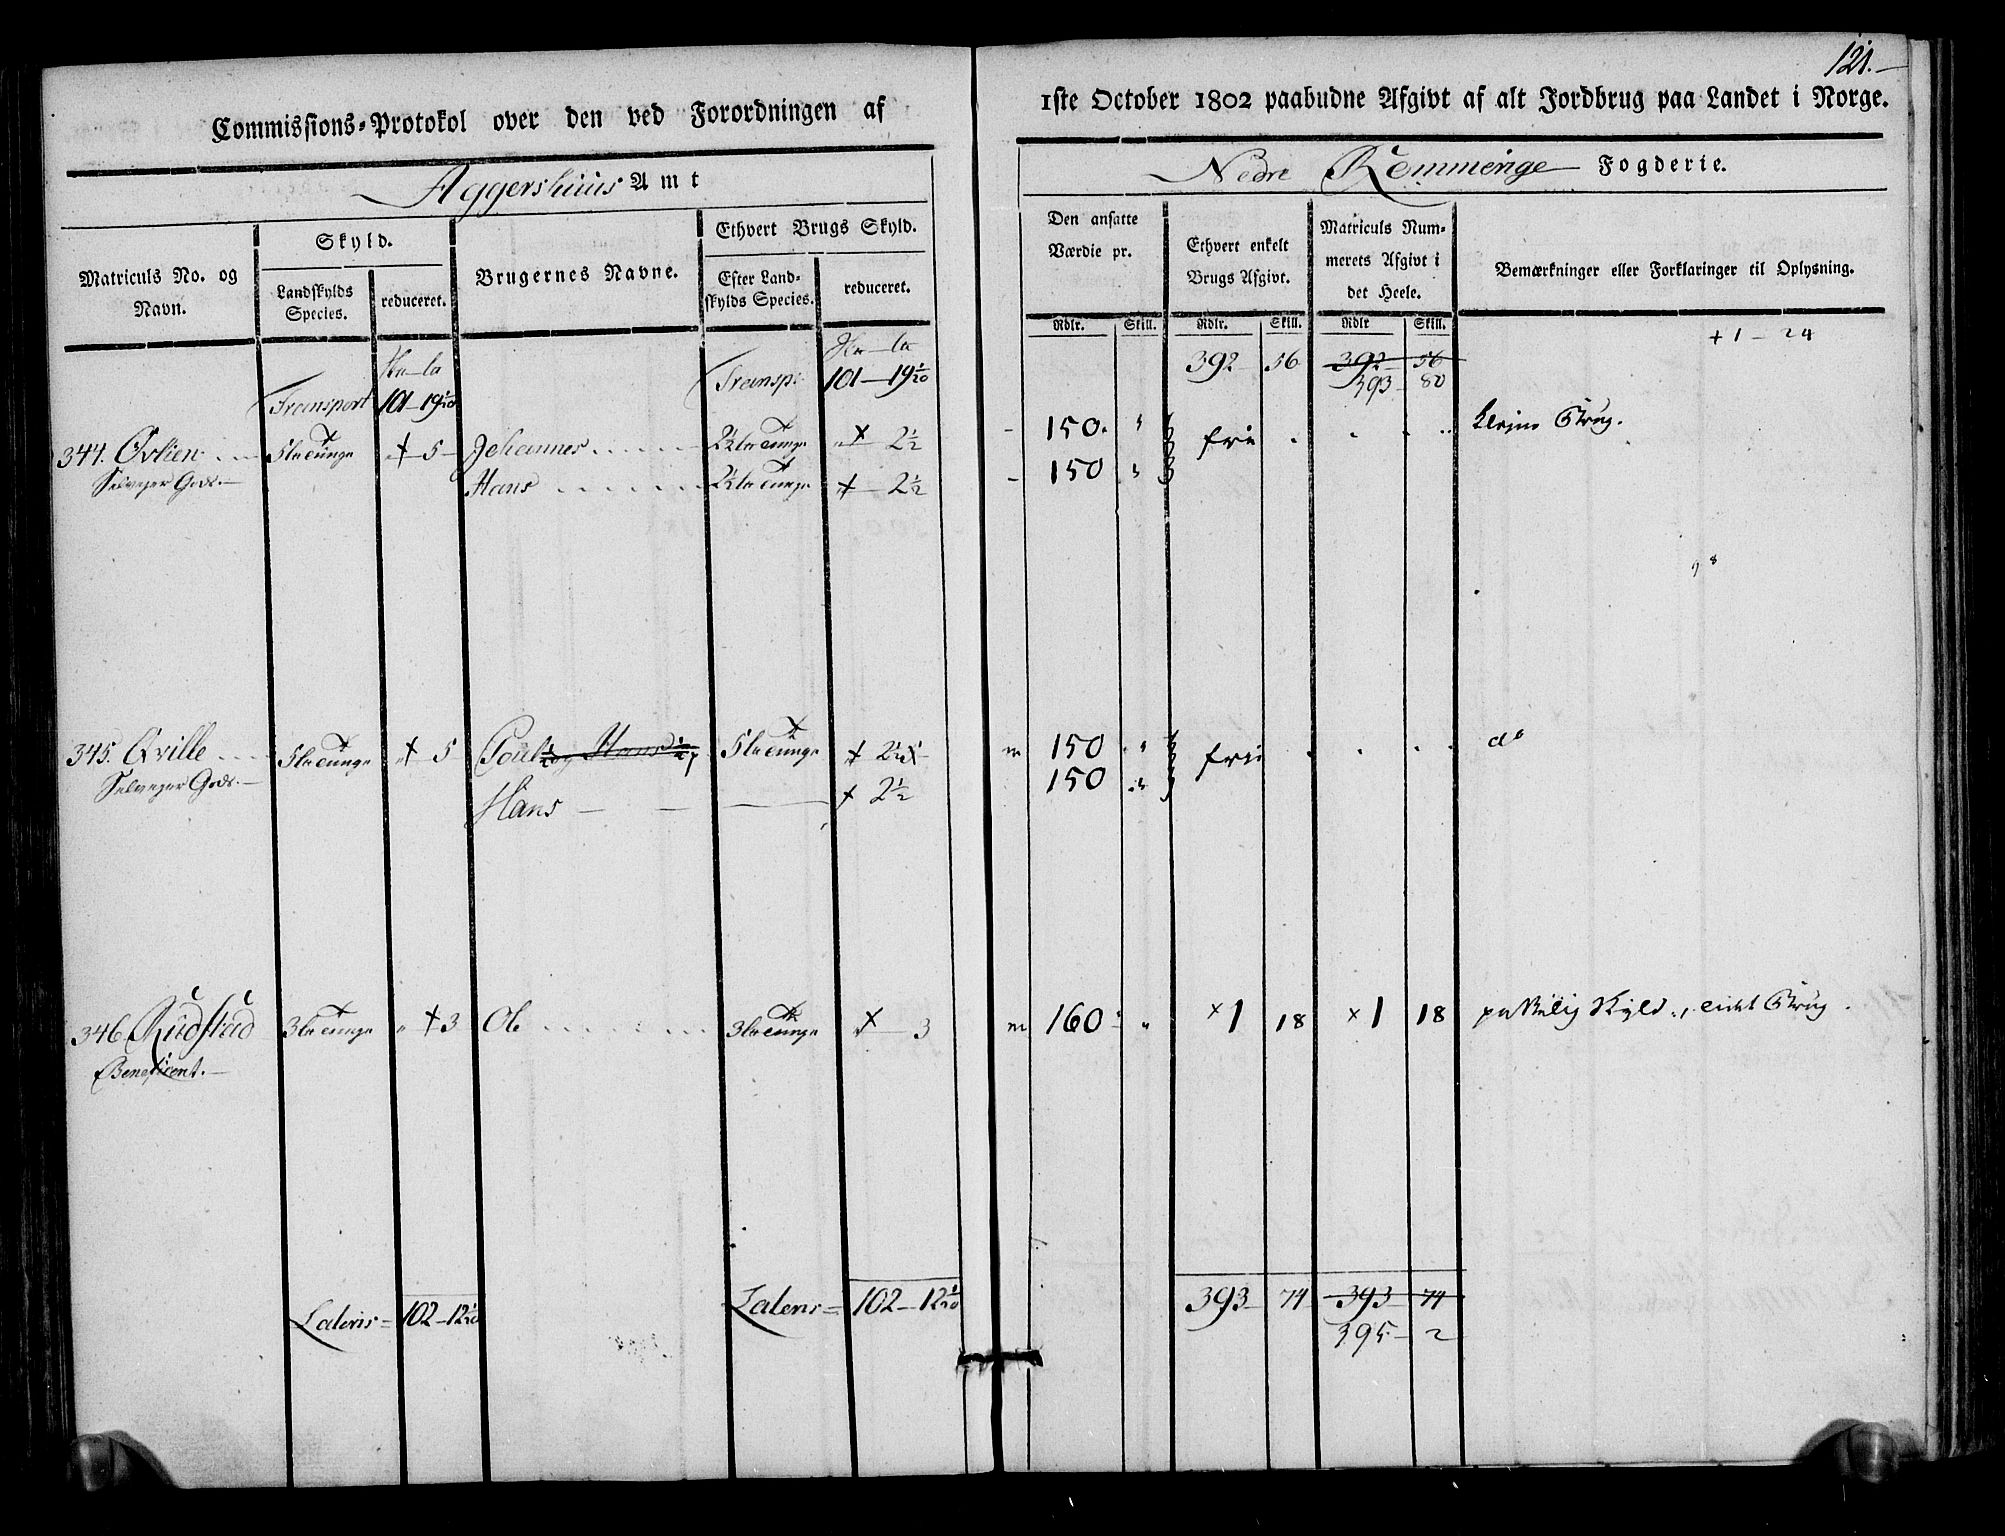 121.
Commissions-Protokol over den ved Forordningen af
1ste October 1802 paabudne Afgivt af alt Jordbrug paa Landet i Norge.
Aggershuus Amt
Nedre Romerige Fogderie.
Matriculs No. og Navn.
Skyld.
Landskylds Species.
reduceret.
Brugernes Navne.
Ethvert Brugs Skyld.
Efter Landskylds Species.
reduceret.
Den ansatte Værdie pr.
Ethvert enkelt Brugs Afgivt.
Matriculs Nummerets Afgivt i det Heele.
Bemærkninger eller Forklaringer til Oplysning.
Rdlr. Skill. Rdlr. Skill. Rdlr Skill.
+1 - 24
Transport 101-19 1/20 Transp: 101-19 1/20 392 56 392 56
393 80
344. Øvlien 5 5 Johannes 2½ 2½ 150. frie
Selveyer Gods. Hans 2½ 2½ 150
345. Qville 5 5 Poul ½ og Hans ½ 5 2½ 150 frie do
Selveyer Gods. Hans 2½ 150
346. Rudstad 3 3 Ole 3 3 160 1 18 1 18
Beneficeret.
Lateris 102-12 1/20 Lateris 102-12 1/20 393 74 393 74
395 2